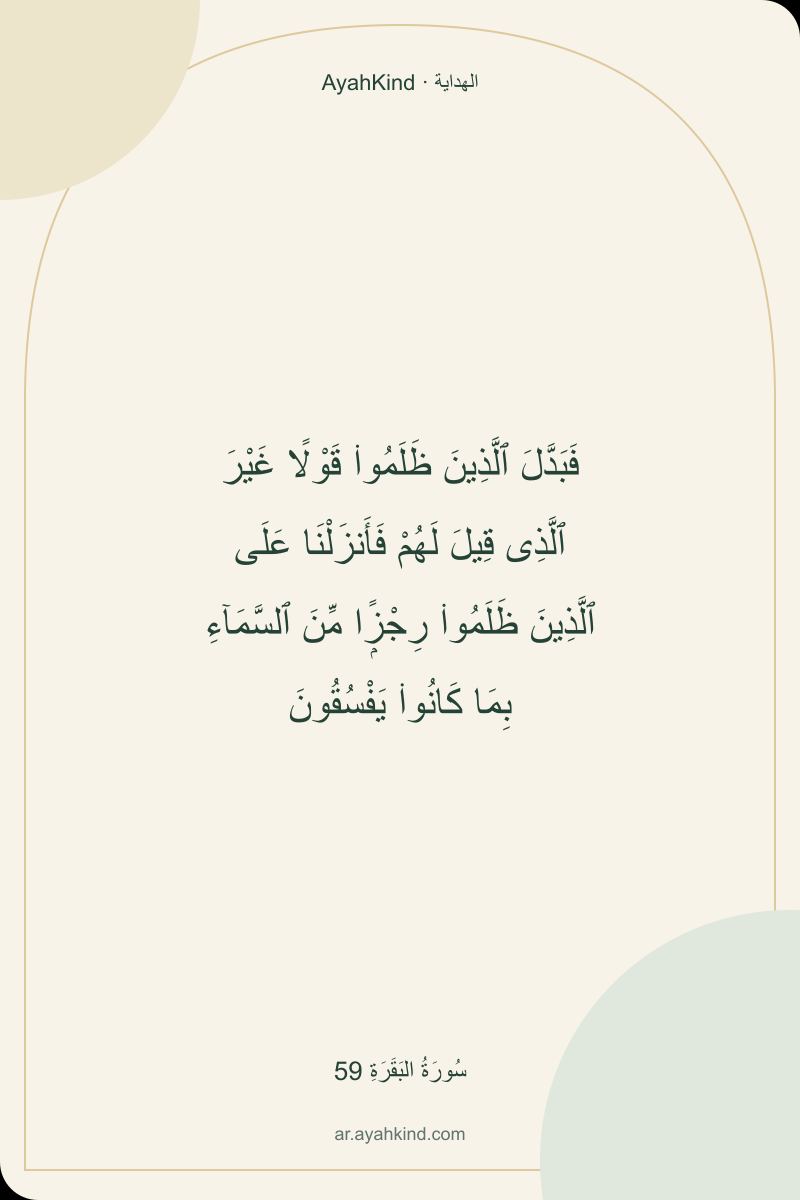 AyahKind · الهداية
فَبَدَّلَ ٱلَّذِينَ ظَلَمُوا۟ قَوْلًا غَيْرَ
ٱلَّذِى قِيلَ لَهُمْ فَأَنزَلْنَا عَلَى
ٱلَّذِينَ ظَلَمُوا۟ رِجْزًۭا مِّنَ ٱلسَّمَآءِ
بِمَا كَانُوا۟ يَفْسُقُونَ
سُورَةُ البَقَرَةِ 59
ar.ayahkind.com